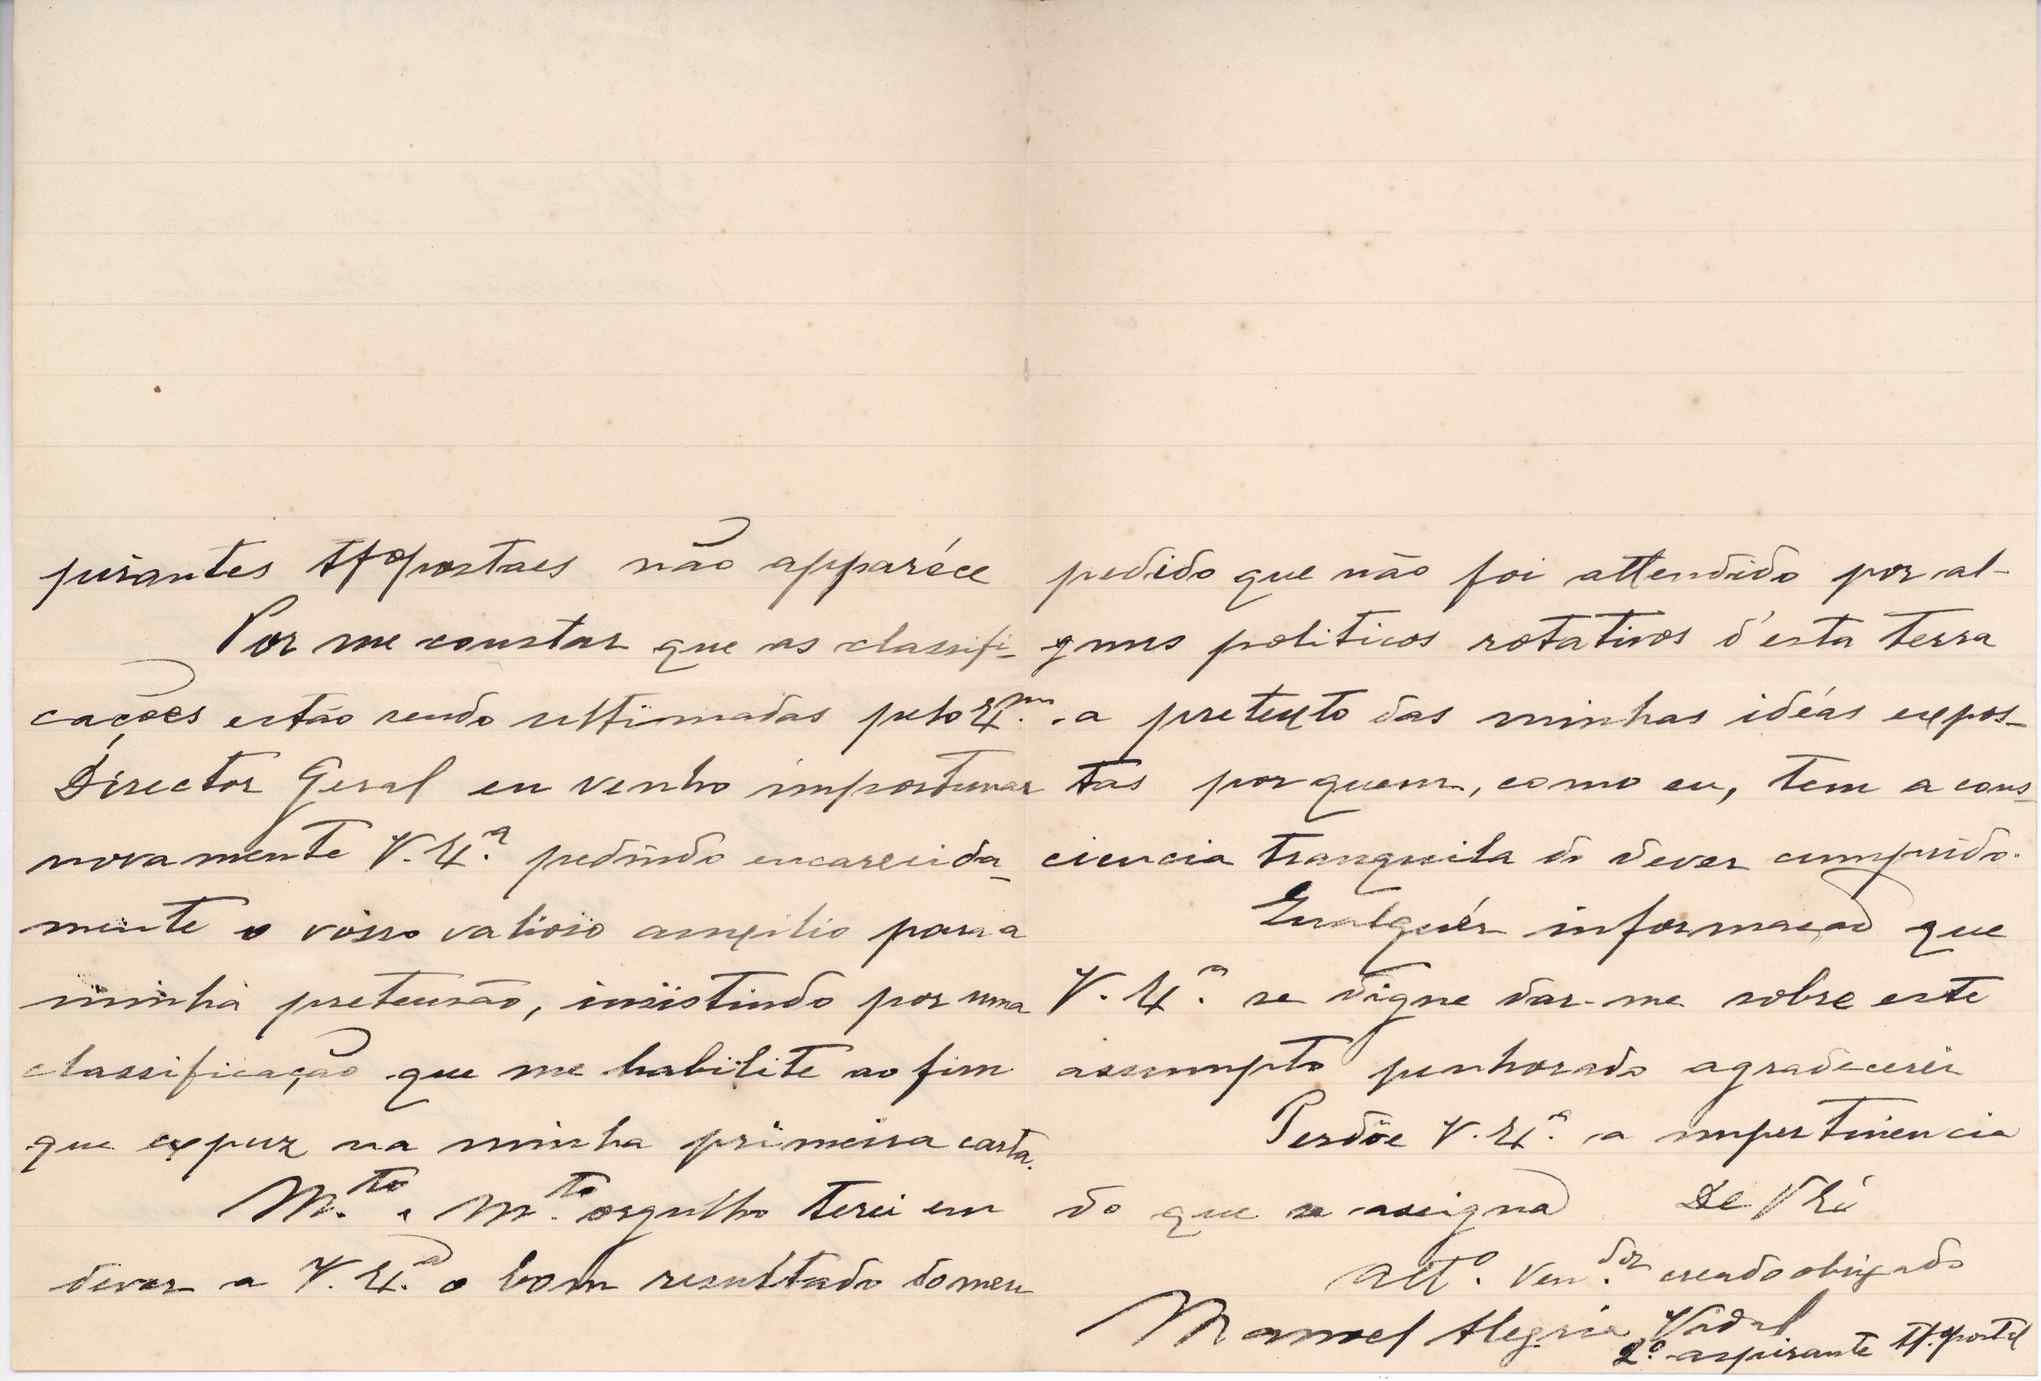 pirantes tf.ºpostaes não apparéce
Por me constar que as classifi-
cações estão sendo ultimadas pelo Ex.mo
Director Geral eu venho importunar
novamente V. Ex.ª pedindo encarecida-
mente o vosso valioso auxilio para a
minha pretensão, insistindo por uma
classificação que me habilite ao fim
que expuz na minha primeira carta.
M.to e M.to orgulho terei em
dever a V. Ex.ª o bom resultado do meu
pedido que não foi attendido por al-
guns politicos rotativos d'esta terra
a pretexto das minhas idéas expos-
tas por quem, como eu, tem a cons-
ciencia tranquila do dever cumprido.
Qualquér informação que
V. Ex.ª se digne dar-me sobre este
assumpto penhorado agradecerei
Perdôe V. Ex.ª a impertinencia
do que se assigna De V Ex.ª
Att.º Ven.dor creado obrigado
Manoel Alegria Vidal
2.º aspirante tf.º postal